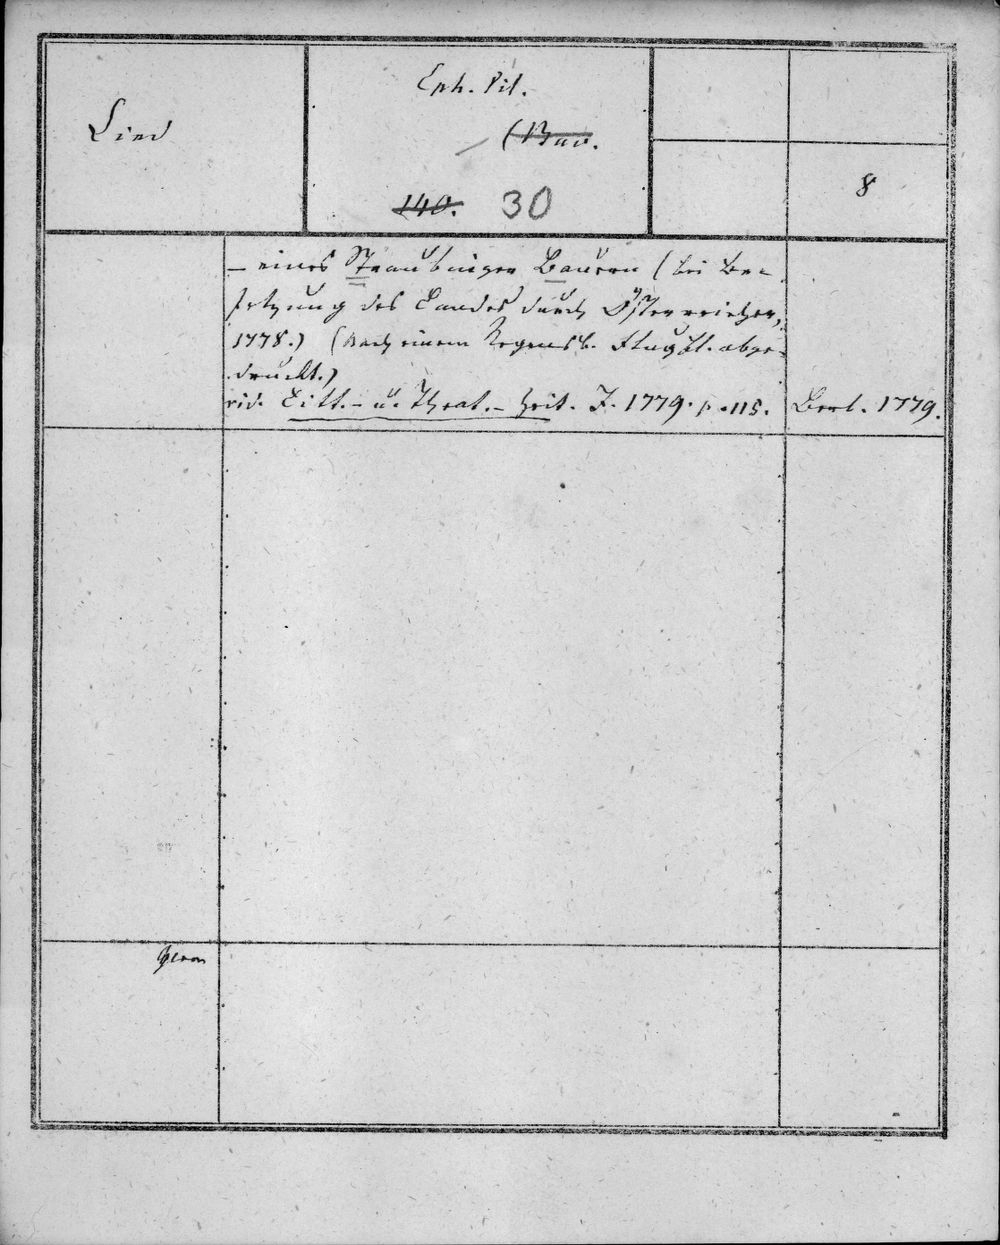 Lied
Eph. lit.
(Bav.
140. 30
8
– eines Straubinger Bauern (bei Be-
setzung des Landes durch Österreicher,
1778.) (Nach einem Regensb. Flugbl. abge-
druckt.)
vid. Litt.- u. Theat.- Zeit. J. 1779. p. 115.
Berl. 1779.